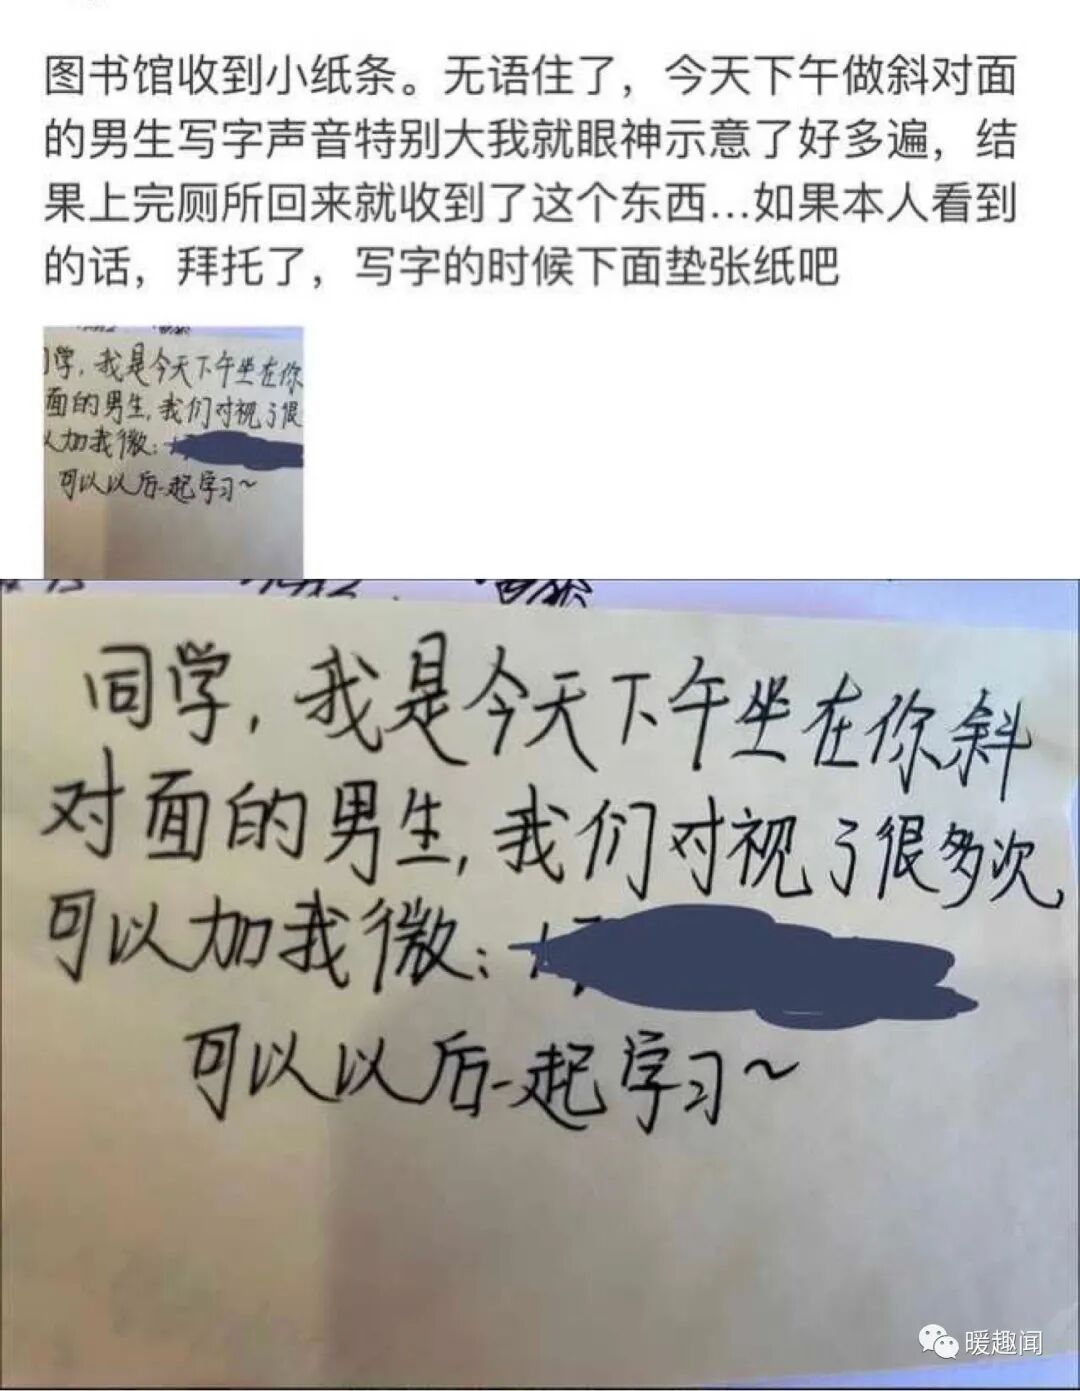 图书馆收到小纸条。无语住了，今天下午做斜对面
的男生写字声音特别大我就眼神示意了好多遍，结
果上完厕所回来就收到了这个东西...如果本人看到
的话，拜托了，写字的时候下面垫张纸吧
学，我是今天下午坐在你
面的男生，我们对视了很
加我微：
可以以后一起学习～
同学，我是今天下午坐在你斜
对面的男生，我们对视了很多次，
可以加我微：
可以以后一起学习～
暖趣闻